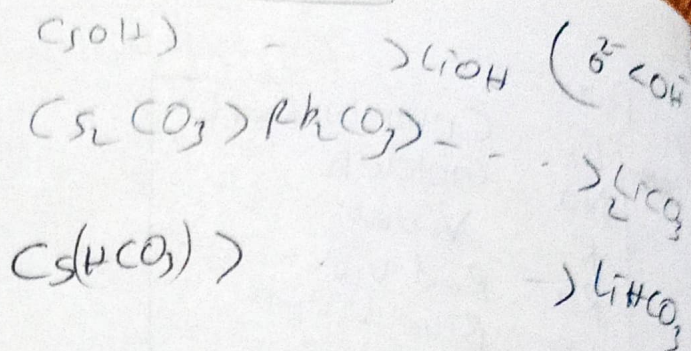 CsOH > - - > LiOH (O²⁻ < OH⁻
Cs₂CO₃ > Rb₂CO₃ > - - - - > Li₂CO₃
Cs(HCO₃) > - > LiHCO₃